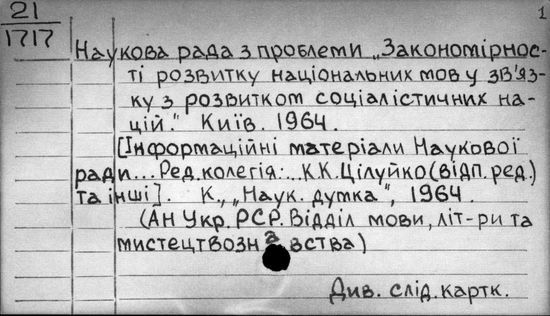 21
1717
1
Наукова рада з проблеми „Закономірнос-
ті розвитку національних мов у зв'яз-
ку з розвитком соціалістичних на-
цій." Київ. 1964.
[Інформаційні матеріали Наукової
ради... Ред.колегія:...К.К.Цілуйко(відп.ред.)
та інші]. К., „Наук. думка", 1964.
(АН Укр.РСР. Відділ мови, літ-ри та
мистецтвознавства)
Див. слід.картк.